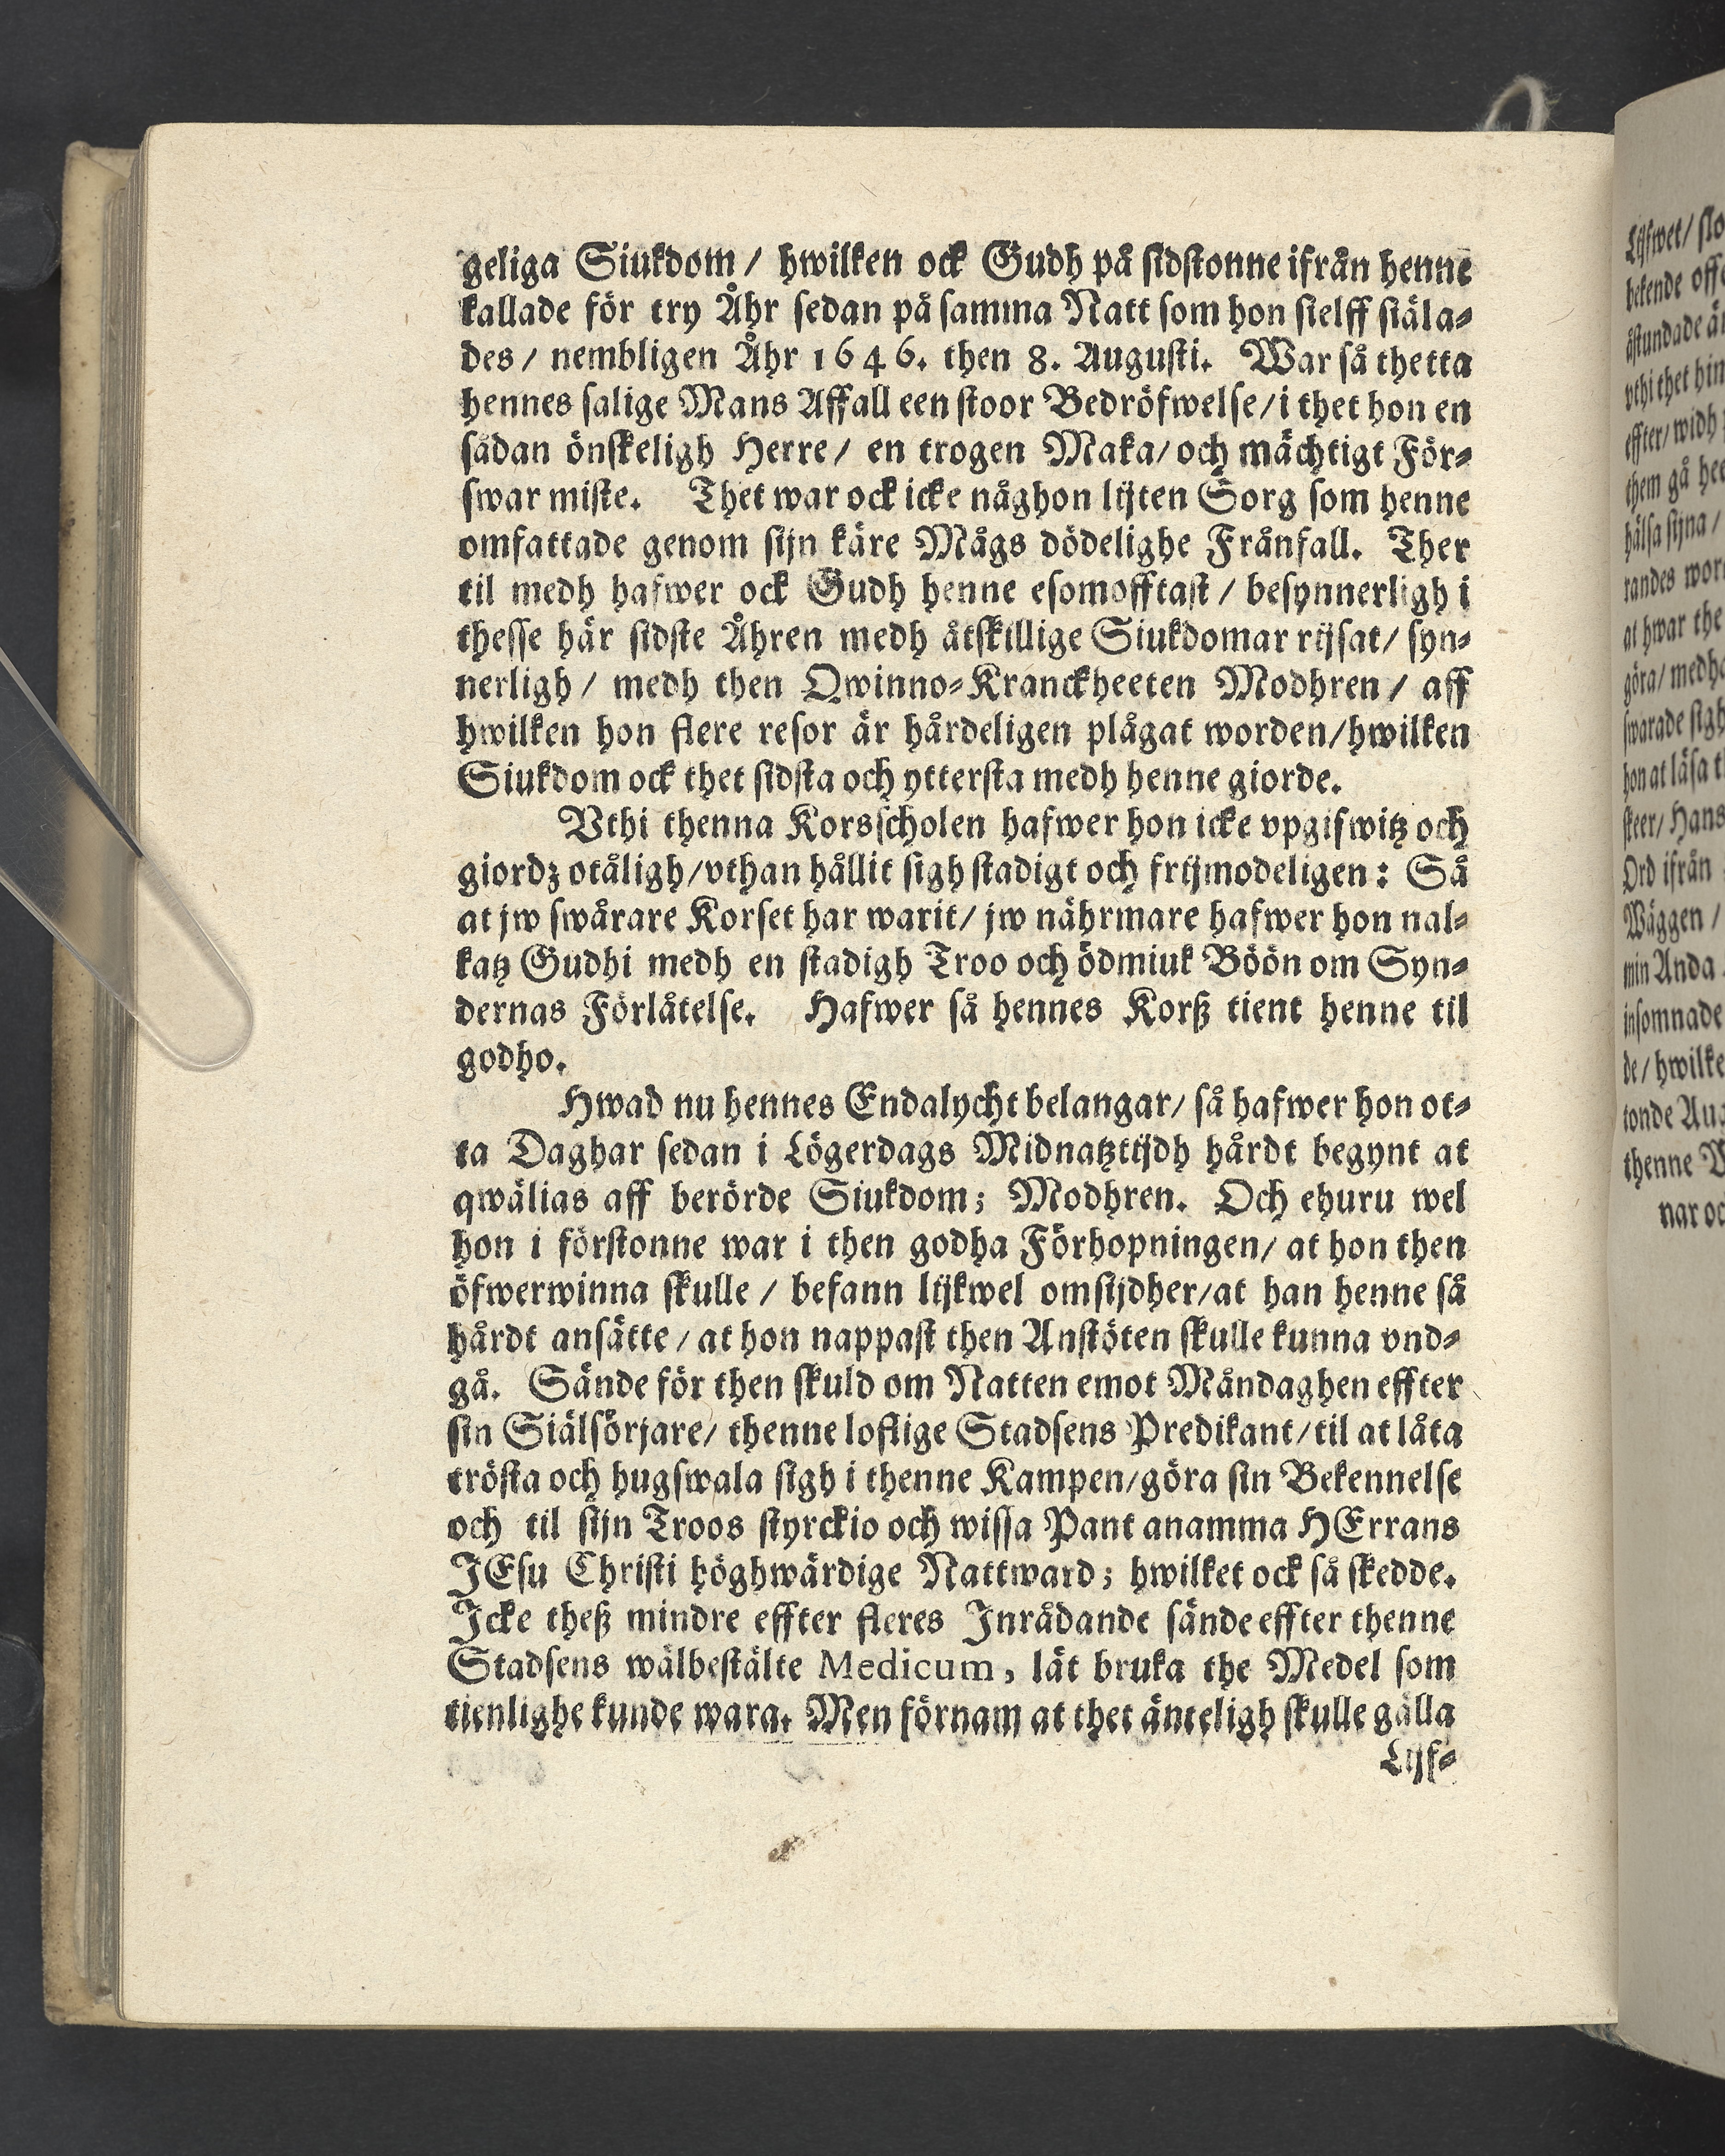 geliga Siukdom / hwilken ock Gudh på sidstonne ifrån henne
kallade för try Åhr sedan på samma Natt som hon sielff siäla-
des / nembligen Åhr 1646. then 8. Augusti. War så thetta
hennes salige Mans Affall een stoor Bedröfwelse / i thet hon en
sådan önskeligh Herre / en trogen Maka / och mächtigt För-
swar miste. Thet war ock icke någhon lijten Sorg som henne
omfattade genom sijn käre Mågs dödelighe Frånfall. Ther
til medh hafwer ock Gudh henne esomofftast / besynnerligh i
thesse här sidste Åhren medh åtskillige Siukdomar rijsat / syn-
nerligh / medh then Qwinno-Kranckheeten Modhren / aff
hwilken hon flere resor är hårdeligen plågat worden / hwilken
Siukdom ock thet sidsta och yttersta medh henne giorde.
Vthi thenna Korsscholen hafwer hon icke vpgifwitz och
giordz otåligh / vthan hållit sigh stadigt och frijmodeligen: Så
at jw swårare Korset har warit / jw nährmare hafwer hon nal-
katz Gudhi medh en stadigh Troo och ödmiuk Böön om Syn-
dernas Förlåtelse. Hafwer så hennes Korß tient henne til
godho.
Hwad nu hennes Endalycht belangar / så hafwer hon ot-
ta Daghar sedan i Lögerdags Midnatztijdh hårdt begynt at
qwälias aff berörde Siukdom; Modhren. Och ehuru wel
hon i förstonne war i then godha Förhopningen / at hon then
öfwerwinna skulle / befann lijkwel omsijdher / at han henne så
hårdt ansätte / at hon nappast then Anstöten skulle kunna vnd-
gå. Sände för then skuld om Natten emot Måndaghen effter
sin Siälsörjare / thenne loflige Stadsens Predikant / til at låta
trösta och hugswala sigh i thenne Kampen / göra sin Bekennelse
och til sijn Troos styrckio och wissa Pant anamma HErrans
JEsu Christi höghwärdige Nattward; hwilket ock så skedde.
Icke theß mindre effter fleres Inrådande sände effter thenne
Stadsens wälbestälte Medicum, lät bruka the Medel som
tienlighe kunde wara. Men förnam at thet änteligh skulle gälla
Lijf-
Lijfwet /
bekende
åstundade
vthi thet
effter / widh
them gå
hälsa sijna /
randes
at hwar the
göra /
swarade sigh
hon at läsa
skeer / Hans
Ord ifrån
Wäggen /
min Anda
insomnade
de /
tonde
thenne
nar